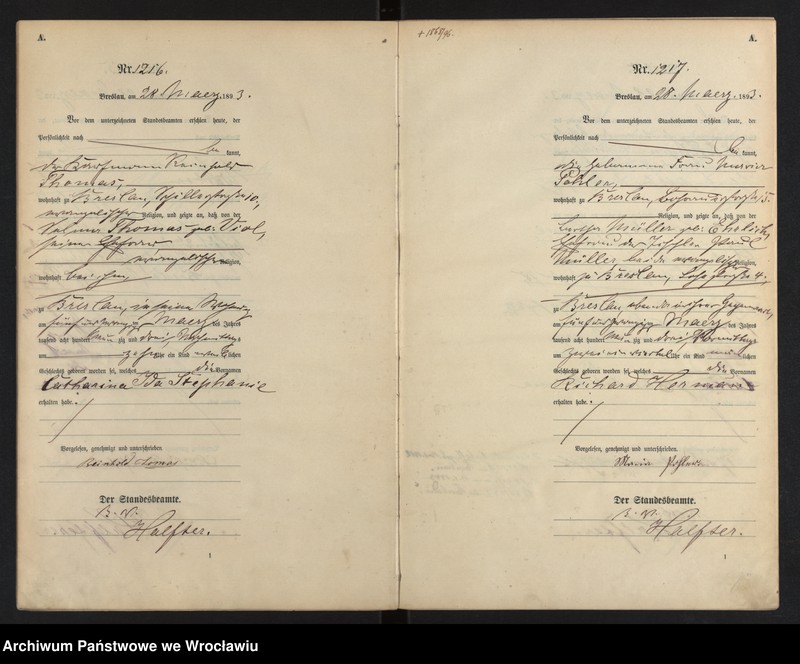 A.
Nr. 1216.
Breslau, am 28. Maerz 1893.
Vor dem unterzeichneten Standesbeamten erschien heute, der
Persönlichkeit nach
kannt,
der Kaufmann Reinhold
Thomas,
wohnhaft zu Breslau, 10,
evangelischer Religion, und zeigte an, daß von der
Thomas geb. Viol,
seiner Ehefrau
evangelischer Religion,
wohnhaft bei ihm
zu Breslau, in seiner Wohnung
am fünfundzwanzig Maerz des Jahres
tausend acht hundert neun zig und drei Nachmittags
um Uhr ein Kind weiblichen
Geschlechts geboren worden sei, welches die Vornamen
Catharina Ida Stephanie
erhalten habe.
Vorgelesen, genehmigt und unterschrieben
Reinhold Thomas
Der Standesbeamte.
B. V.
Halfter.
1
+ 96.
A.
Nr. 1217.
Breslau, am 28. Maerz 1893.
Vor dem unterzeichneten Standesbeamten erschien heute, der
Persönlichkeit nach
kannt,
die Hebamme Frau
wohnhaft zu Breslau, 15.
Religion, und zeigte an, daß von der
Müller geb. Ehrlich,
Ehefrau des Paul
Müller, beide evangelischer Religion,
wohnhaft zu Breslau, 4,
zu Breslau, in ihrer Gegenwart
am fünfundzwanzig Maerz des Jahres
tausend acht hundert neun zig und drei Vormittags
um Uhr ein Kind männlichen
Geschlechts geboren worden sei, welches die Vornamen
Richard Hermann
erhalten habe.
Vorgelesen, genehmigt und unterschrieben
Maria
Der Standesbeamte.
B. V.
Halfter.
1
Archiwum Państwowe we Wrocławiu